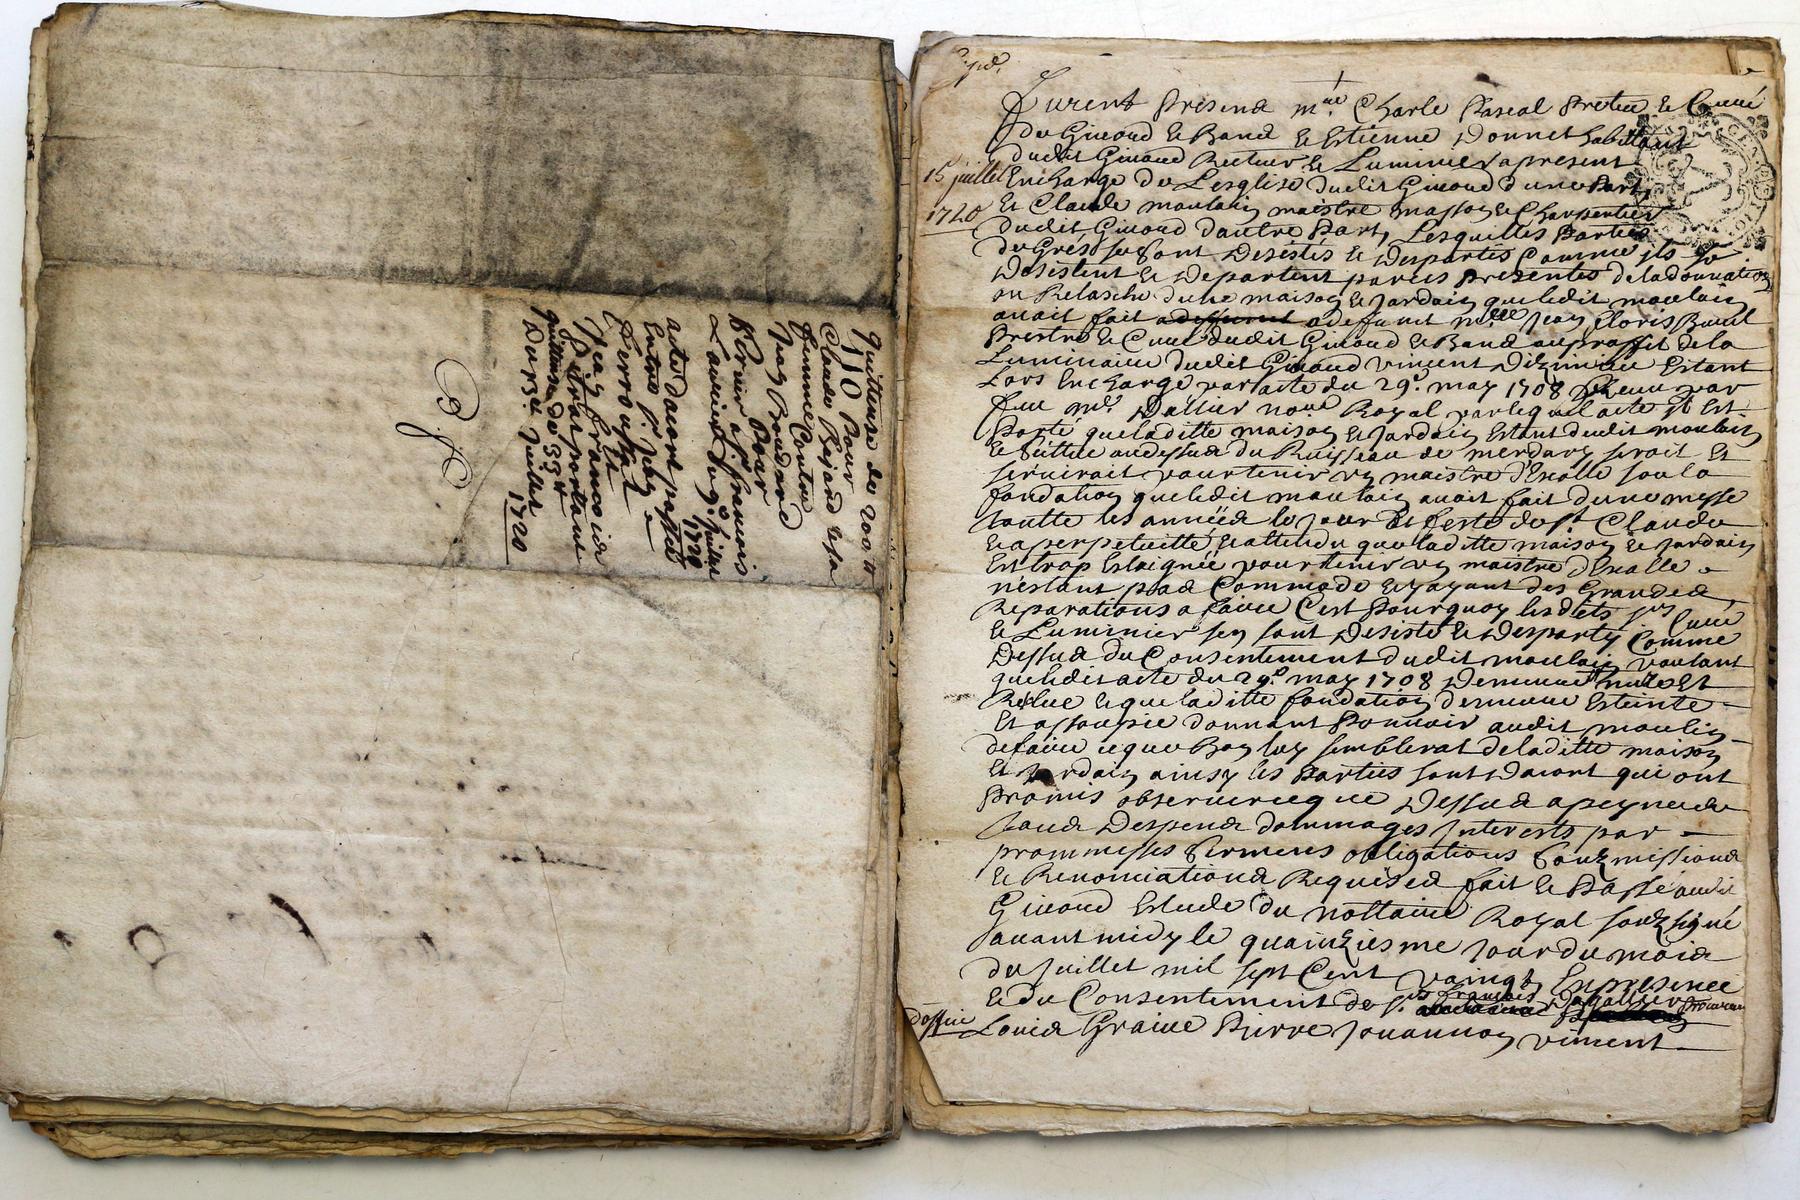 quittense de 200 tt
110 Pour
Claude Bejard & sa
femme Contre
Jean Boudard
Pour
Mr François
1720
acte dacort passé
Entre Sr Jean
Perroussat
& Jean francois
portant
quittense de 33 tt
Du 13e Juillet
1720
Exped.
furent Presens mre Charle Pascal Prestre & Curé
du Giroud & Band & Estienne Donnet habitant
dudit Giroud Recteur & Luminier apresent
15 juillet
Encharge de Lesglise dudit Giroud dune Part
1720
Et Claude moulain maistre masson & Charpentier
dudit Giroud dautre Part, Lesquelles Parties
de Gres se sont Desistés & Despartis Comme ils se
Desistent & Departent par ces Presentes de la donnation
ou Relasche dune maison & Jardain que ledit moulain
avait fait a deffunt mre Jean
Prestre & Curé dudit Giroud & Band au proffit de la
Luminaire dudit Giroud vincent Estant
Lors Encharge par acte du 29e may 1708 Receu par
feu me Dallier nore Royal par lequel acte il Est
Porté que laditte maison & Jardain Estant dudit moulain
& scittué audessus du Ruisseau de merdary seroit Et
serviroit pour tenir un maistre d'Escolle sou la
fondation que ledit moulain avait fait dune messe
toutte les années le jour Et feste de St Claude
& a perpetuitté & attendu que laditte maison & Jardain
Est trop Esloignée pour tenir un maistre d'Escolle
nestant pas Commode & y ayant des Grandes
Reparations a faire C'est Pourquoy lesdets srs Curé
& Luminier sen sont Desisté & Desparty Comme
Dessus du Consentement dudit moulain voulant
que ledit acte du 29e may 1708 Demeure nul Et
Resolue & que laditte fondation demeure Esteinte
Et assoupie donnant Pouvoir audit moulin
de faire ce que Bon luy semblerat de laditte maison
Et Jardain ainsy les Parties sont Dacort qui ont
Promis observer ce que Dessus a peyne de
tous Despens dommages Interests par
prommesses sermens obligations soubmissions
& Renonciations Requises fait & Passé audit
Giroud Estude du nottaire Royal soubsigné
avant midy le quainziesme Jour du mois
de Juillet mil sept Cent vaingt En presence
& du Consentement de sr francois Dagallier Procureur
doffice Louis Graive Pierre Jouannon vincent